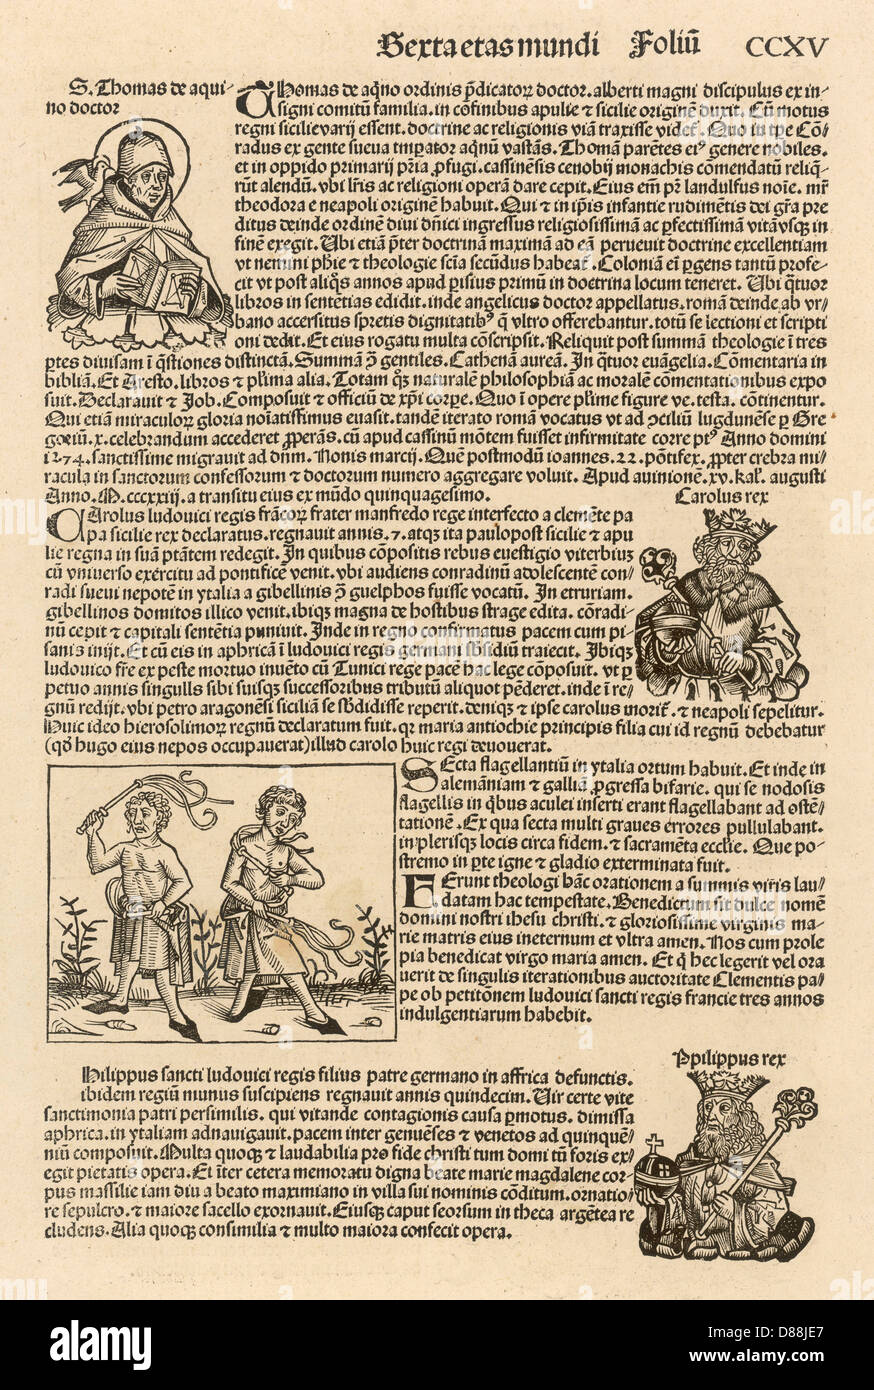 Sexta etas mundi Foliū CCXV
S. Thomas de aqui-
no doctor
THomas de aq̄no ordinis p̄dicatorꝝ doctor. alberti magni discipulus ex in-
signi comitū familia. in cōfinibus apulie ⁊ sicilie originē duxit. Cū motus
regni sicilie varij essent. doctrine ac religionis viā traxisse videt᷑. Quo in tp̄e Cō-
radus ex gente sueua imperator aqnū vastās. Thomā parētes eiꝰ genere nobiles.
et in oppido primarij pr̄ia ꝓfugi. cassinēsis cenobij monachis cōmendatū reliq̄-
rūt alendū. vbi lr̄is ac religioni operā dare cepit. Eius em̄ pr̄ landulfus noīe. mr̄
theodora e neapoli originē habuit. Qui ⁊ in ip̄is infantie rudimētis dei gr̄a pre
ditus deinde ordinē diui dn̄ici ingressus religiosissimā ac ꝑfectissimā vitā vsqꝫ in
finē exegit. Ubi etiā p̄ter doctrinā maximā ad eā peruenit doctrine excellentiam
vt nemini phīe ⁊ theologie scīa secūdus habeat᷑. Coloniā em̄ ꝑgens tantū profe-
cit vt post aliq̄s annos apud parisius primū in doctrina locum teneret. Ubi q̄tuor
libros in sentētias edidit. inde angelicus doctor appellatus. romā deinde ab vr-
bano accersitus spretis dignitatibꝰ q̄ vltro offerebantur. totū se lectioni et scripti
oni dedit. Et eius rogatu multa cōscripsit. Reliquit post summā theologie ī tres
ꝑtes diuisam ī q̄stiones distinctā. Summā ꝯ̄ gentiles. Cathenā aureā. In q̄tuor euāgelia. Cōmentaria in
bibliā. Et Aresto. libros ⁊ pl̄ima alia. Totam qꝫ naturalē philosophiā ac moralē cōmentationibus expo
suit. Declarauit ⁊ Job. Composuit ⁊ officiū de xp̄i corꝑe. Quo ī opere pl̄ime figure ve. testa. cōtinentur.
Qui etiā miraculoꝝ gloria noīatissimus euasit. tandē iterato romā vocatus vt ad ꝯciliū lugdunēse ꝑ Gre
goriū. x. celebrandum accederet ꝓperās. cū apud cassinū mōtem fuisset infirmitate correptꝰ Anno domini
1274. sanctissime migrauit ad dn̄m. Nonis marcij. Quē postmodū ioannes. 22. pōtifex. ꝓpter crebra mi-
racula in sanctorum confessorum ⁊ doctorum numero aggregare voluit. Apud auinionē. xv. kal̄. augusti
Anno. M.cccxxiij. a transitu eius ex mūdo quinquagesimo.
Carolus rex
CArolus ludouici regis frācoꝝ frater manfredo rege interfecto a clemēte pa
pa sicilie rex declaratus. regnauit annis. 7. atqꝫ ita paulopost sicilie ⁊ apu
lie regna in suā ptātem redegit. In quibus cōpositis rebus euestigio viterbiuꝫ
cū vniuerso exercitu ad pontificē venit. vbi audiens conradinū adolescentē con-
radi sueui nepotē in ytalia a gibellinis ꝯ̄ guelphos fuisse vocatū. In etruriam.
gibellinos domitos illico venit. ibiqꝫ magna de hostibus strage edita. cōradi-
nū cepit ⁊ capitali sentētia puniuit. Inde in regno confirmatus pacem cum pi-
sanis inijt. Et cū eis in aphricā ī ludouici regis germani sb̄sidiū traiecit. Ibiqꝫ
ludouico fr̄e ex peste mortuo inuēto cū Tunici rege pacē hac lege cōposuit. vt ꝑ
petuo annis singulis sibi suisqꝫ successoribus tributū aliquot pēderet. inde ī re-
gnū redijt. vbi petro aragonēsi siciliā se sb̄didisse reperit. deniqꝫ ⁊ ipse carolus morit᷑. ⁊ neapoli sepelitur.
Huic ideo hierosolimoꝝ regnū declaratum fuit. qꝛ maria antiochie principis filia cui id regnū debebatur
(qd̄ hugo eius nepos occupauerat) illud carolo huic regi deuouerat.
SEcta flagellantiū in ytalia ortum habuit. Et inde in
alemāniam ⁊ galliā ꝓgressa bifarie. qui se nodosis
flagellis in q̄bus aculei inserti erant flagellabant ad ostē-
tationē. Ex qua secta multi graues errores pullulabant.
in plerisqꝫ locis circa fidem. ⁊ sacramēta ecclīe. Que po-
stremo in ꝑte igne ⁊ gladio exterminata fuit.
FErunt theologi hāc orationem a summis viris lau-
datam hac tempestate. Benedictum sit dulce nomē
domini nostri ihesu christi. ⁊ gloriosissime virginis ma-
rie matris eius ineternum et vltra amen. Nos cum prole
pia benedicat virgo maria amen. Et q̄ hec legerit vel ora
uerit de singulis iterationibus auctoritate Clementis pa-
pe ob petitōnem ludouici sancti regis francie tres annos
indulgentiarum habebit.
Ppilippus rex
PHilippus sancti ludouici regis filius patre germano in affrica defunctis.
ibidem regiū munus suscipiens regnauit annis quindecim. Uir certe vite
sanctimonia patri persimilis. qui vitande contagionis causa ꝑmotus. dimissa
aphrica. in ytaliam adnauigauit. pacem inter genuēses ⁊ venetos ad quinquē-
niū composuit. Multa quoqꝫ ⁊ laudabilia pro fide christi tum domi tū foris ex-
egit pietatis opera. Et īter cetera memoratu digna beate marie magdalene cor-
pus massilie iam diu a beato maximiano in villa sui nominis cōditum. ornatio-
re sepulcro. ⁊ maiore sacello exornauit. Eiusqꝫ caput seorsum in theca argētea re
cludens. Alia quoqꝫ consimilia ⁊ multo maiora confecit opera.
alamy
Image ID: D88JE7
www.alamy.com